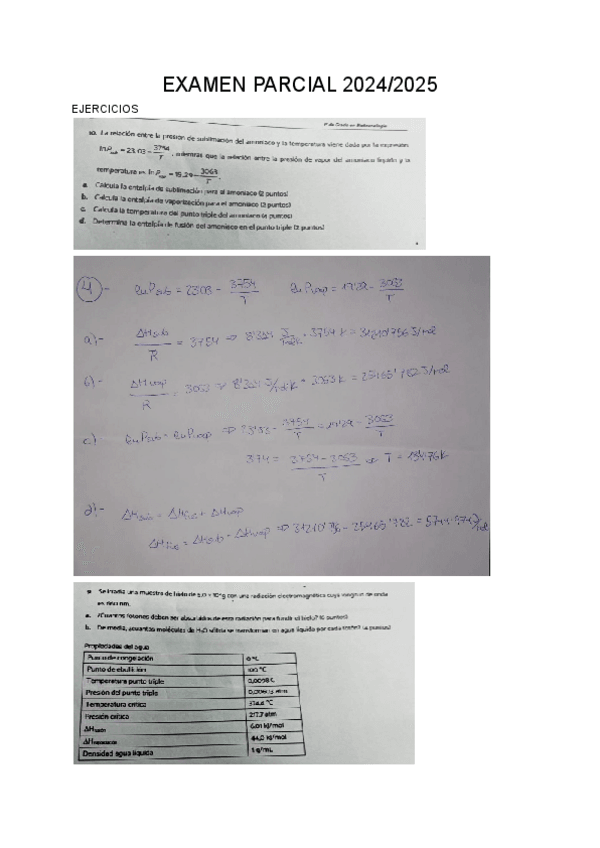 EXAMEN PARCIAL 2024/2025
EJERCICIOS
1º de Grado en Biotecnología
10. La relación entre la presión de sublimación del amoniaco y la temperatura viene dada por la expresión
ln P sub = 23.03 - 3754/T, mientras que la relación entre la presión de vapor del amoniaco líquido y la
temperatura es ln P vap = 19.29 - 3063/T.
a. Calcula la entalpía de sublimación para el amoniaco (2 puntos)
b. Calcula la entalpía de vaporización para el amoniaco (2 puntos)
c. Calcula la temperatura del punto triple del amoniaco (4 puntos)
d. Determina la entalpía de fusión del amoniaco en el punto triple (2 puntos)
4)- ln Psub = 23'03 - 3754/T ln Pvap = 19'29 - 3063/T
a)- ΔHsub/R = 3754 ⇒ 8'314 J/molK · 3754 K =
b)- ΔHvap/R = 3063 ⇒ 8'314 J/molK · 3063 K =
c)- ln Psub = ln Pvap ⇒ 23'03 - 3754/T = 19'29 - 3063/T
3'74 = 3754 - 3063/T
d)- ΔHsub = ΔHfus + ΔHvap
ΔHfus = ΔHsub - ΔHvap ⇒
una muestra de hielo de con una radiación electromagnética cuya longitud de onda
es 660 nm.
a. ¿Cuántos fotones deben ser absorbidos de esta radiación para fundir el hielo?
b. De media, ¿cuántas moléculas de H2O sólida se transforman en agua líquida por cada fotón?
Propiedades del agua
Punto de congelación 0 ºC
Punto de ebullición 100 ºC
Temperatura punto triple 0,0098 C
Presión del punto triple atm
Temperatura crítica ºC
Presión crítica 217.7 atm
ΔH 6,01 kJ/mol
ΔH kJ/mol
Densidad agua líquida 1 g/mL